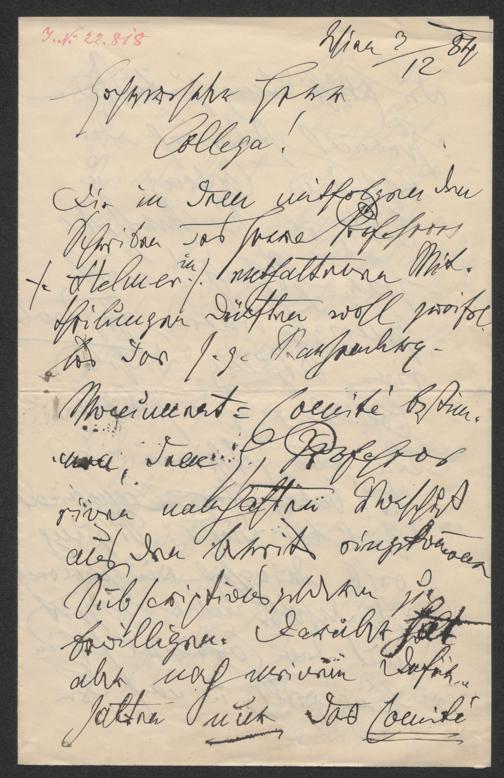 I. N. 22.818
Wien 3/12 84
Hochverehrter Herr
Collega!
Die in dem mitfolgenden
Schreiben des Herrn Professors
Helmer enthaltenen Mit-
theilungen dürften wohl zweifel
los das s. g.
Monument-Comité bestim-
men, dem Professor
einen namhaften Vorschuß
aus den bereits eingekommenen
Subscriptionsgeldern zu
bewilligen. Darüber hat
aber nach meinem Dafür-
halten nur das Comité